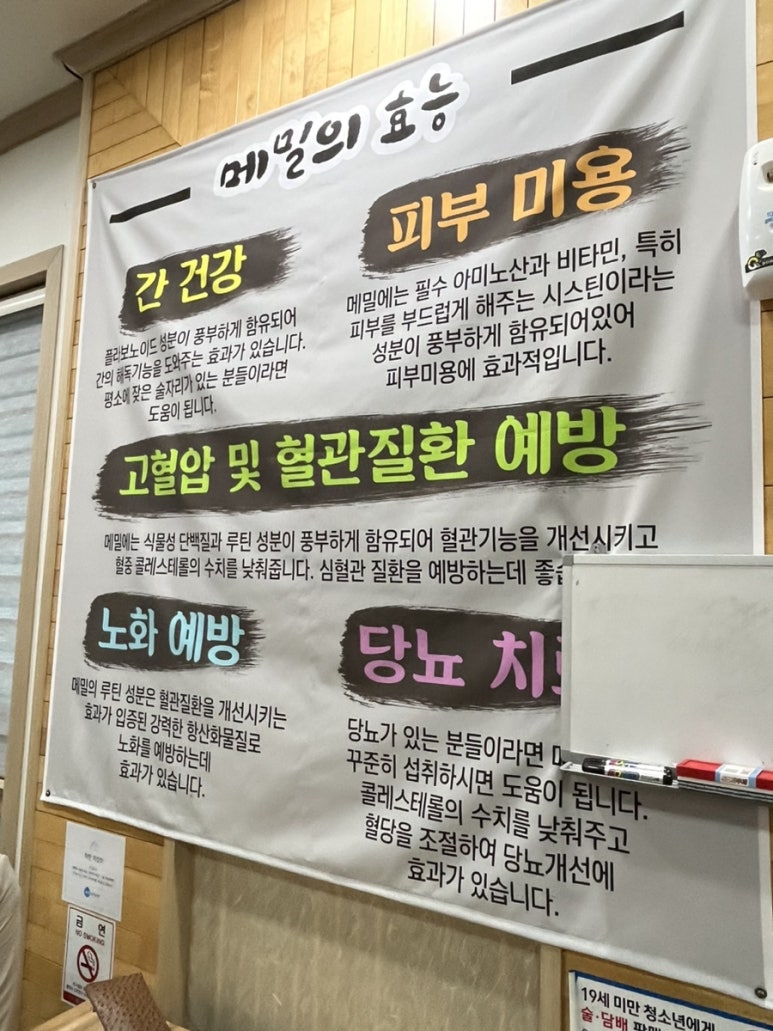 메밀의 효능
간 건강
플리보노이드 성분이 풍부하게 함유되어
간의 해독기능을 도와주는 효과가 있습니다.
평소에 잦은 술자리가 있는 분들이라면
도움이 됩니다.
피부 미용
메밀에는 필수 아미노산과 비타민, 특히
피부를 부드럽게 해주는 시스틴이라는
성분이 풍부하게 함유되어있어
피부미용에 효과적입니다.
고혈압 및 혈관질환 예방
메밀에는 식물성 단백질과 루틴 성분이 풍부하게 함유되어 혈관기능을 개선시키고
혈중 콜레스테롤의 수치를 낮춰줍니다. 심혈관 질환을 예방하는데
노화 예방
메밀의 루틴 성분은 혈관질환을 개선시키는
효과가 입증된 강력한 항산화물질로
노화를 예방하는데
효과가 있습니다.
당뇨
당뇨가 있는 분들이라면
꾸준히 섭취하시면 도움이 됩니다.
콜레스테롤의 수치를 낮춰주고
혈당을 조절하여 당뇨개선에
효과가 있습니다.
금 연
NO SMOKING
19세 미만 청소년에게
술·담배